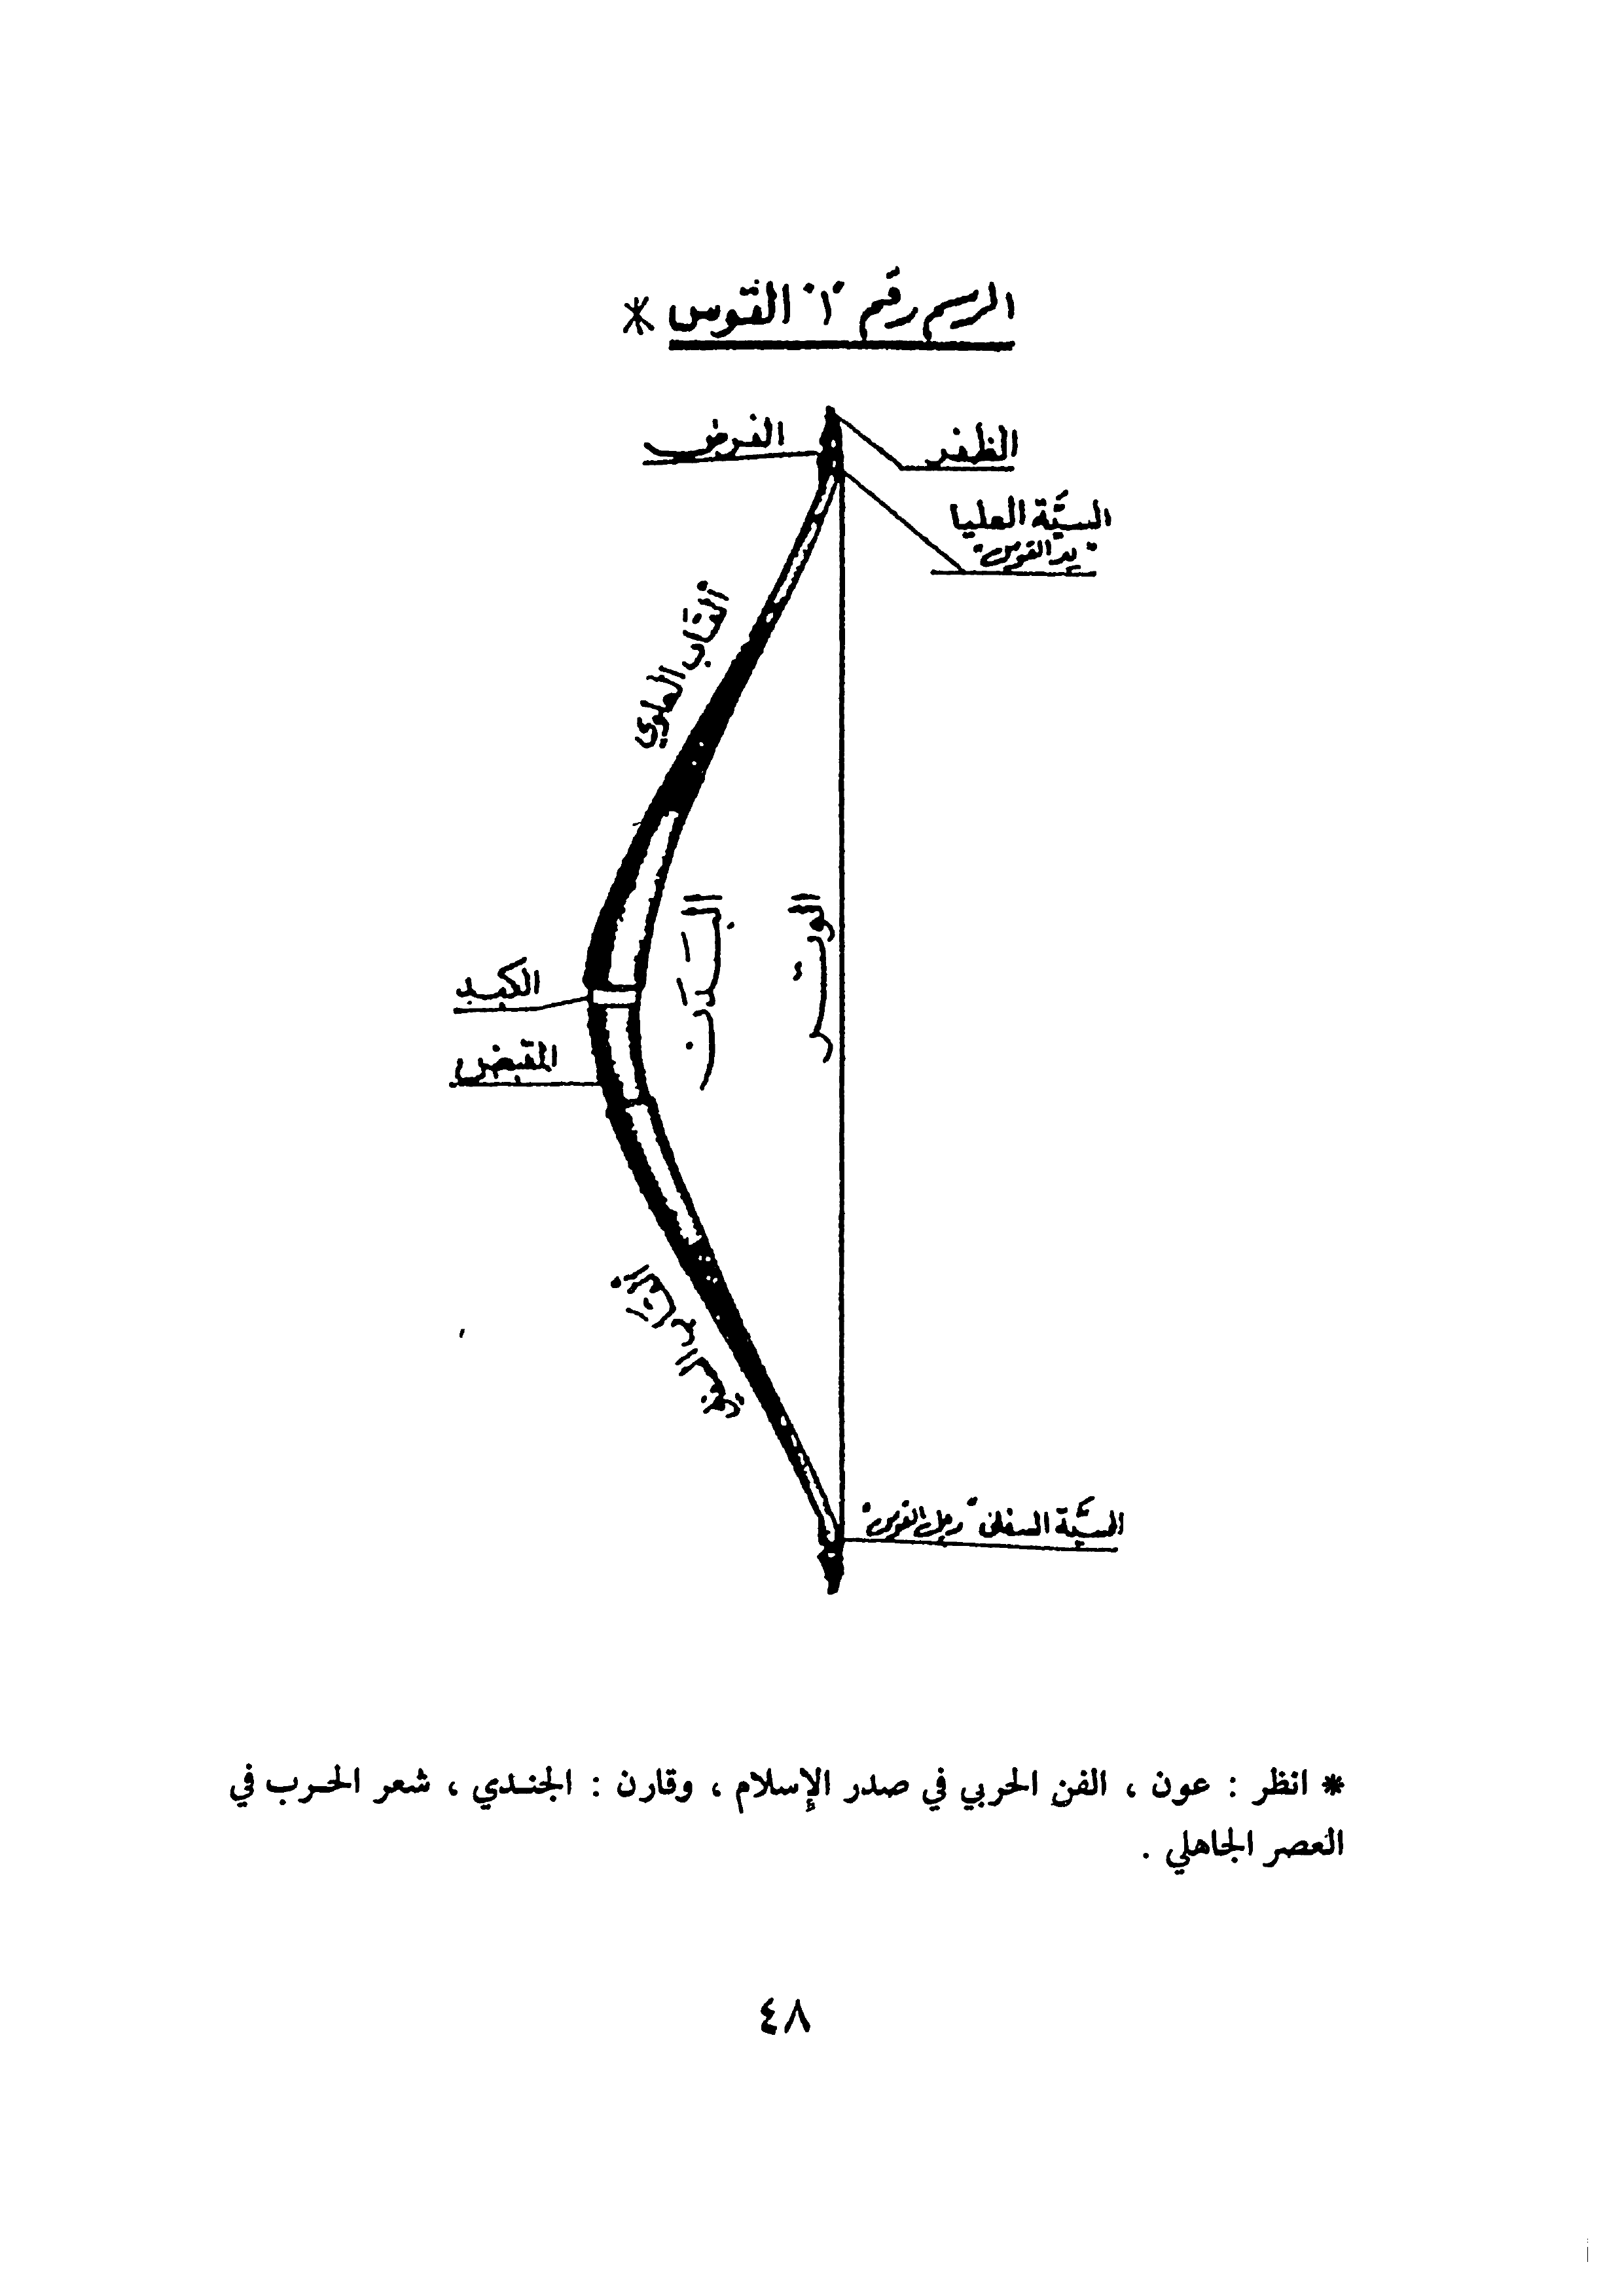 الرسم رقم "١" القوس *
الظفر
الفرض
السيَّة العليا
"يد القوس"
القَاب العلوي
البَدَن
الوتر
الكبد
المقبض
القاب السفلي
السيَّة السفلى "رجل القوس"
* انظر : عون ، الفن الحربي في صدر الإسلام ، وقارن : الجندي ، شعر الحرب في
العصر الجاهلي .
٤٨